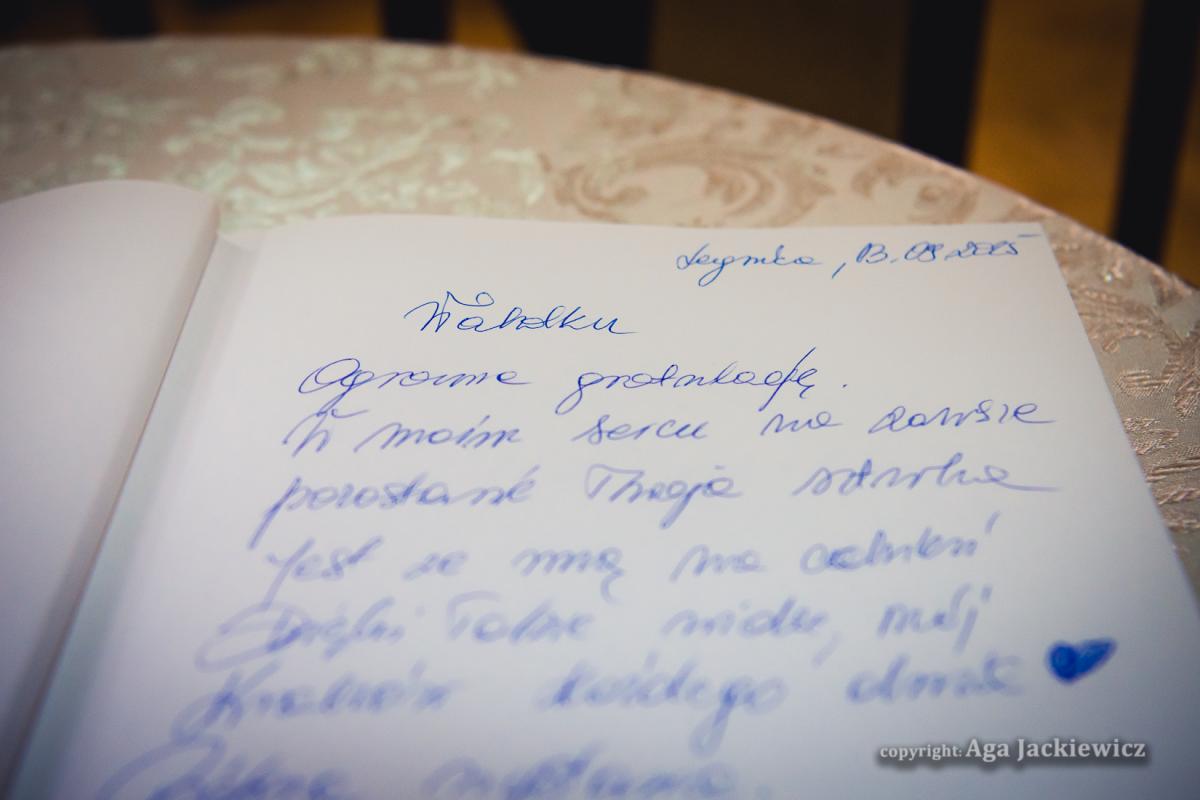 Legnica, 13.09.2025
Witoldku
Ogromne gratulacje.
W moim sercu na zawsze
pozostanie Twoja sztuka
Jest ze mną na codzień
Dzięki Tobie widzę, mój
Kraków każdego dnia
copyright: Aga Jackiewicz